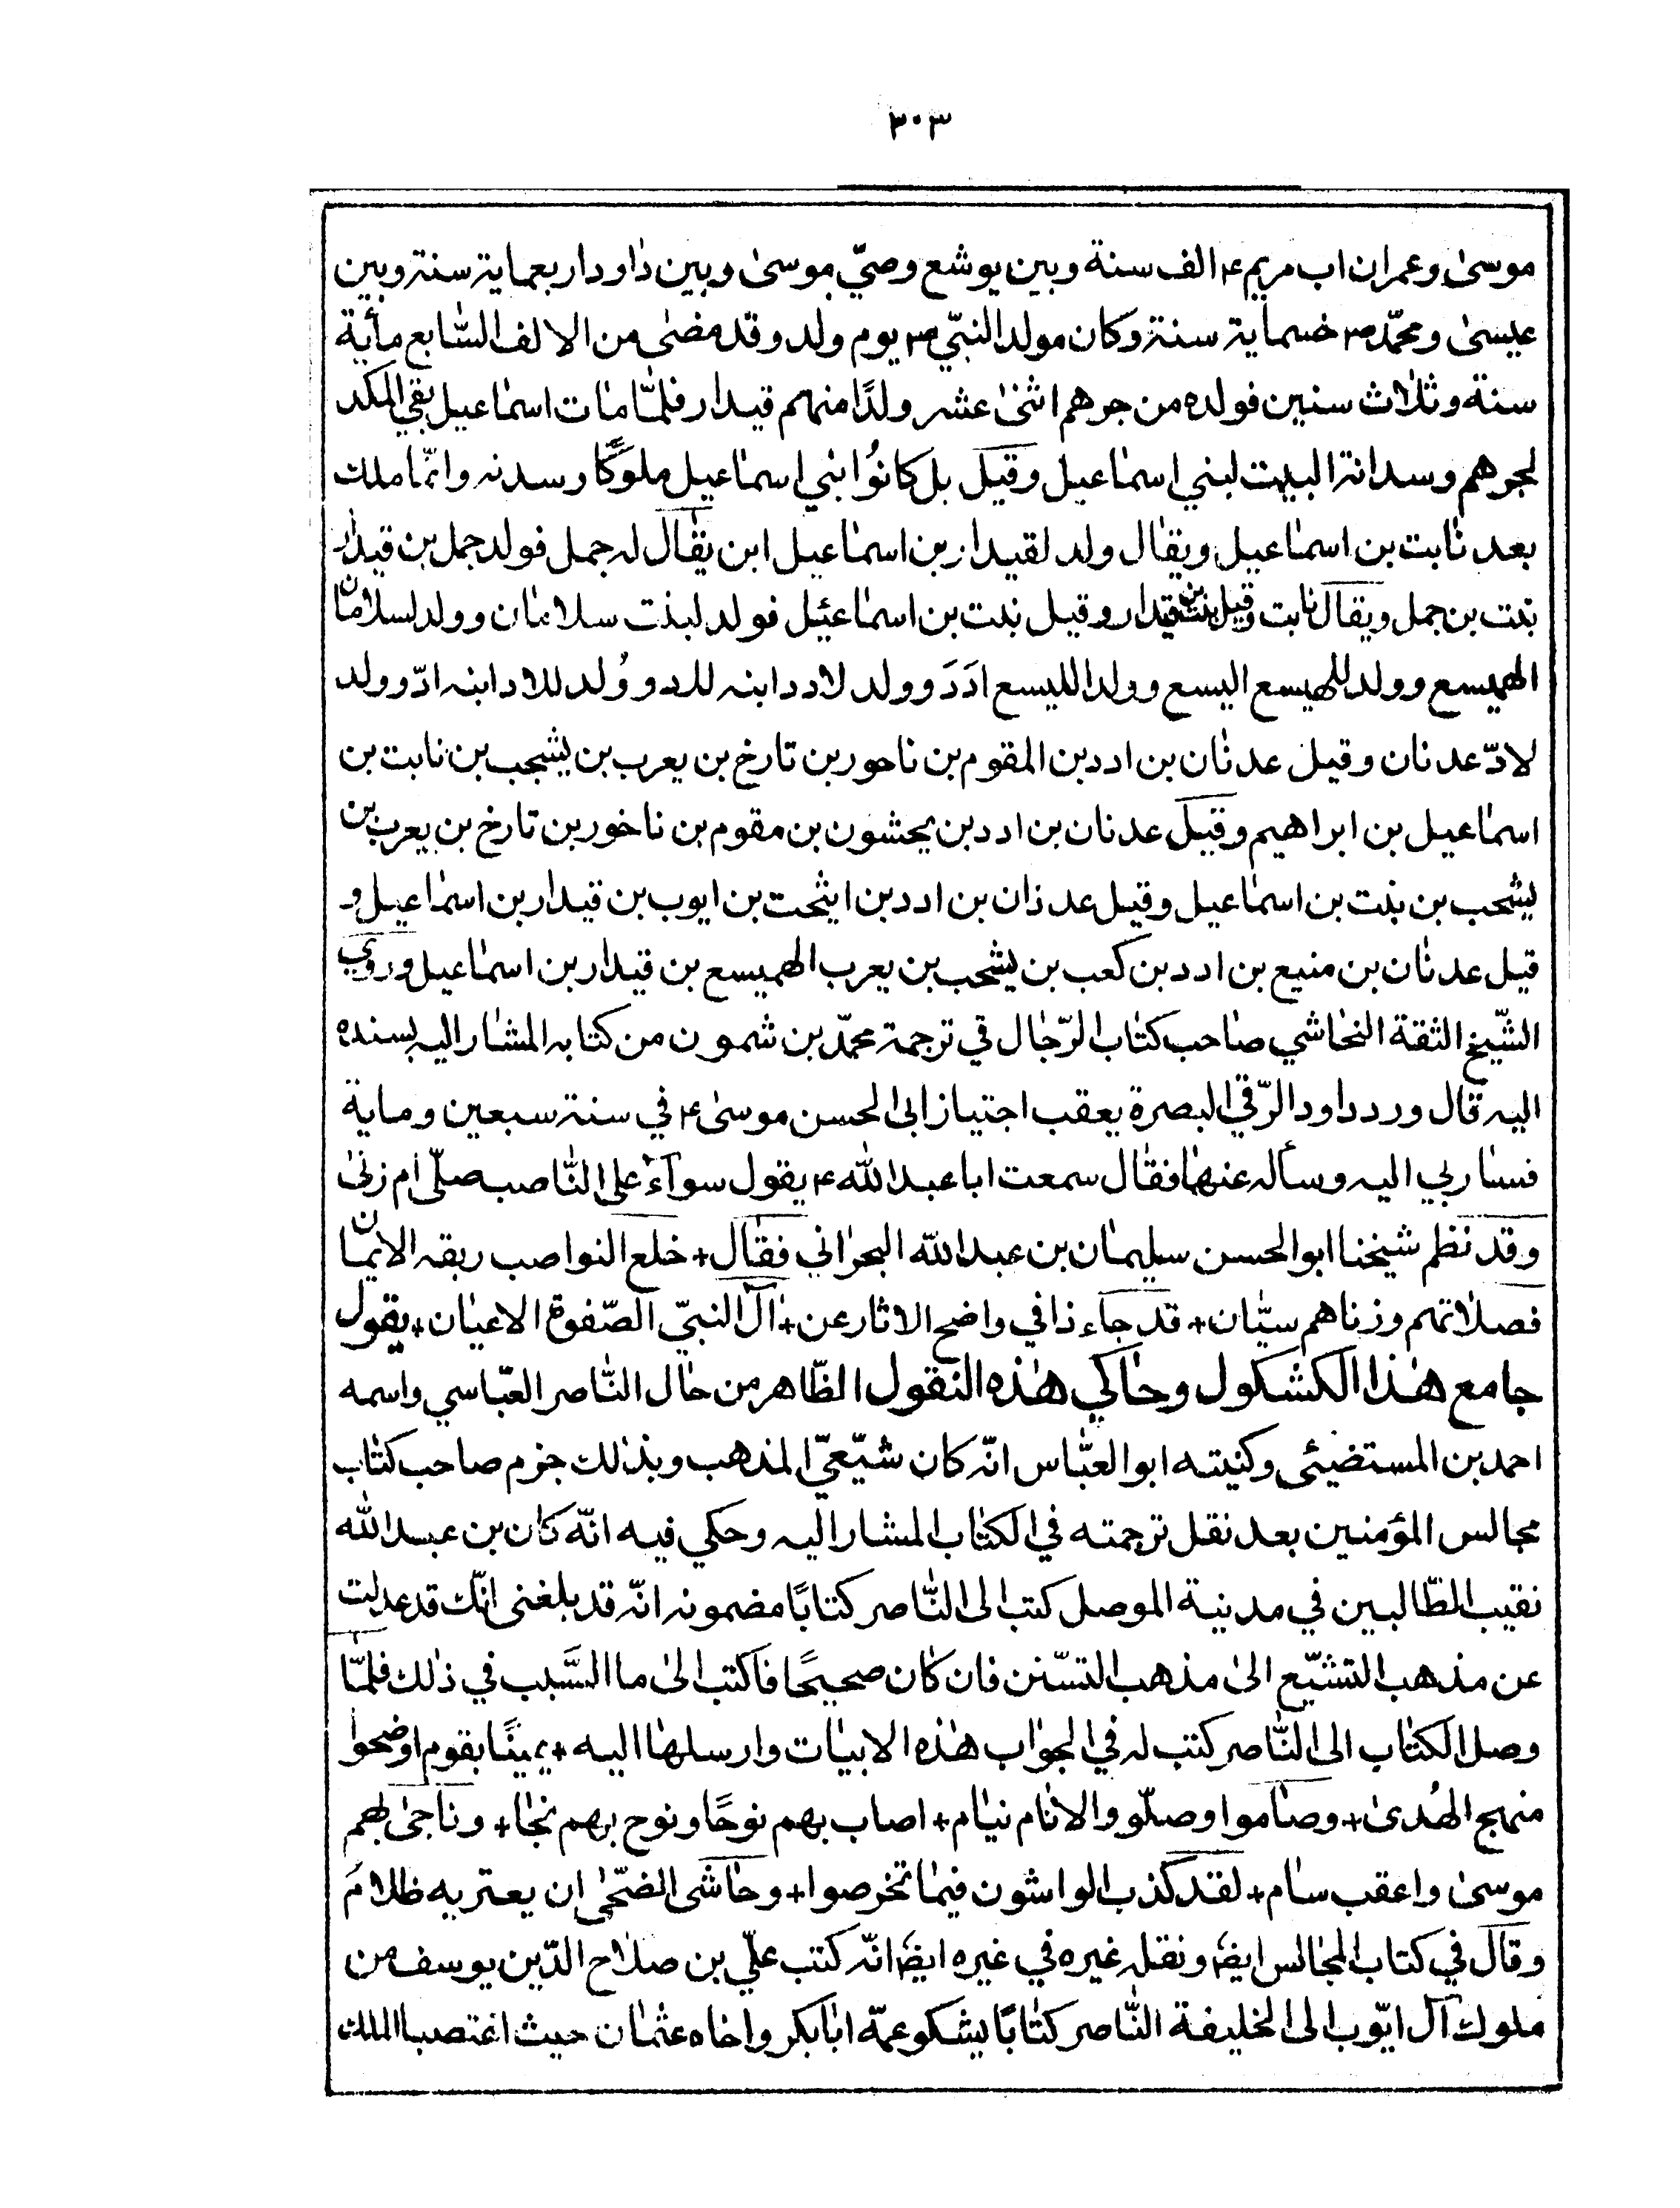 ٣٠٣
موسىٰ وعمران اب مريم ع الف سنة وبين يوشع وصيّ موسىٰ وبين داود اربعماية سنة وبين
عيسىٰ ومحمّد ص خمسماية سنة وكان مولد النبّي ص يوم ولد وقد مضىٰ من الالف السّابع مأية
سنة وثلاث سنين فولده من جرهم اثنىٰ عشر ولدًا منهم قيدار فلمّا مات اسماعيل بقي الملك
لجرهم وسدانة البيت لبني اسماعيل وقيل بل كانوُا بني اسماعيل ملوكًا وسدنه وانّما ملك
بعد نابت بن اسماعيل ويقال ولد لقيدار بن اسماعيل ابن يقال له جمل فولد جمل بن قيدار
نبت بن جمل ويقال نابت وقيل نبت بن قيدار وقيل نبت بن اسماعيل فولد لنبت سلامان وولد لسلامان
الهميسع وولد للهميسع اليسع وولد الليسع ادَدَ وولد لادد ابنه للدد ووُلد للاد ابنه ادّ وولد
لادّ عدنان وقيل عدنان بن ادد بن المقوم بن ناحور بن تارخ بن يعرب بن يشجب بن نابت بن
اسماعيل بن ابراهيم وقيل عدنان بن ادد بن يحشون بن مقوم بن ناخور بن تارخ بن يعرب بن
يشحب بن نبت بن اسماعيل وقيل عدنان بن ادد بن ايثحت بن ايوب بن قيدار بن اسماعيل و
قيل عدنان بن منيع بن ادد بن كعب بن يشحب بن يعرب الهميسع بن قيدار بن اسماعيل وروي
الشّيخ الثقة النجاشي صاحب كتاب الرّجال في ترجمة محمّد بن شمون من كتابه المشار اليه بسنده
اليه قال ورد داود الرّقي البصرة يعقب اجتياز ابىٰ الحسن موسىٰ ع في سنة سبعين وماية
فسار بي اليه وسأله عنهما فقال سمعت ابا عبد الله ع يقول سوآء على النّاصب صلّى ام زنىٰ
وقد نظم شيخنا ابو الحسن سليمان بن عبد الله البحراني فقال + خلع النواصب ربقه الايمان
فصلاتهم وزناهم سيّان + قد جاء ذا في واضح الاثار عن + آل النبيّ الصّفوة الاعيان + يقول
جامع هٰذا الكشكول وحاكي هٰذه النقول الظّاهر من حال النّاصر العبّاسي واسمه
احمد بن المستضيئى وكنيته ابو العبّاس انّه كان شيّعيّ المذهب وبذلك جزم صاحب كتاب
مجالس المؤمنين بعد نقل ترجمته في الكتاب المشار اليه وحكي فيه انّه كان بن عبد الله
نقيب الطّالبين في مدنية الموصل كتب الى النّاصر كتابًا مضمونه انّه قد بلغنى انّك قد عدلت
عن مذهب التشيّع الىٰ مذهب التسّنن فان كان صحيحًا فاكتب الىٰ ما السَّبب في ذلك فلمّا
وصل الكتاب الى النّاصر كتب له في الجواب هٰذه الابيات وارسلها اليه + يمينًا بقوم اوضحوا
منهج الهُدىٰ + وصاموا وصلّوو الانام نيام + اصاب بهم نوحًا ونوح بهم نجا + وناجىٰ بهم
موسىٰ واعقب سام + لقد كذب الواشون فيما تخرصوا + وحاشى الضحّىٰ ان يعتريه ظلامَ
وقال في كتاب المجالس ايضا ونقله غيره في غيره ايضا انّه كتب علّي بن صلاح الدّين يوسف من
ملوك آل ايّوب الى الخليفة النّاصر كتابًا يشكو عمّه ابابكر واخاه عثمان حيث اغتصبا الملك